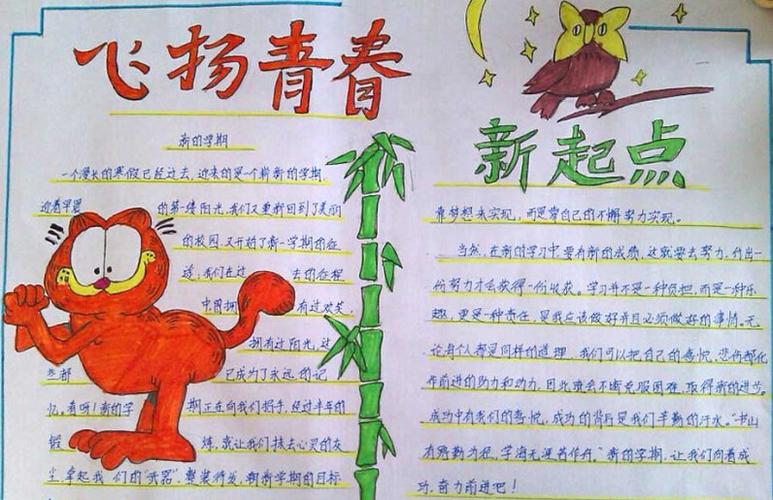 飞扬青春
新的学期
一个漫长的寒假已经过去,迎来的是一个崭新的学期,
迎着早晨的第一缕阳光,我们又重新回到了美丽
的校园,又开始了新一学期的征
途,我们在过去的征程
中曾拥有过欢笑,
拥有过阳光,这
些都已成为了永远的记
忆。看呀!新的学期正在向我们招手,经过半年的
锻炼,就让我们抹去心灵的灰
尘,拿起我们的“武器”,整装待发,朝新学期的目标
新起点
靠梦想来实现,而是靠自己的不懈努力实现。
当然,在新的学习中,要有新的成绩,这就要去努力,付出一
份努力才会获得一份收获。学习并不是一种负担,而是一种乐
趣,更是一种责任,是我应该做好并且必须做好的事情,无
论每个人都是同样的道理,我们可以把自己的喜悦,悲伤都化
作前进的助力和动力,因此唯有不断克服困难,取得新的进步。
成功中有我们的喜悦,成功的背后是我们辛勤的汗水。“书山
有路勤为径,学海无涯苦作舟。”新的学期,让我们向着成
功,奋力前进吧!